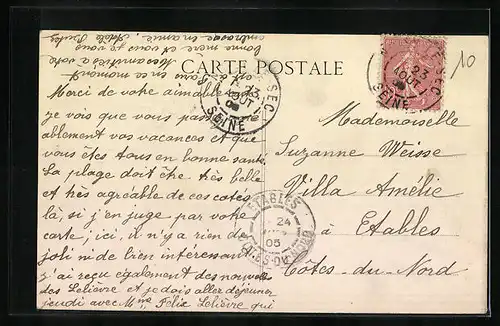 CARTE POSTALE
Merci de votre aimable
je vois que vous passez
ablement vos vacances et que
vous êtes tous en bonne santé
La plage doit être très belle
et très agréable de ces cotés
là, si j'en juge par votre
carte; ici, il n'y a rien de
joli ni de bien intéressant
j'ai reçu également des nouvelles
des Lelièvre et je dois aller déjeuner
jeudi avec Mme Félix Lelièvre qui
Paris en ce moment
bonne mère et vous je vous
embrasse en amie
Mademoiselle
Suzanne Weisse
Villa Amélie
à Etables
Côtes-du-Nord
23
AOUT
SEINE
23
AOUT
SEINE
ETABLES
24
05
CÔTES-DU-NORD
10